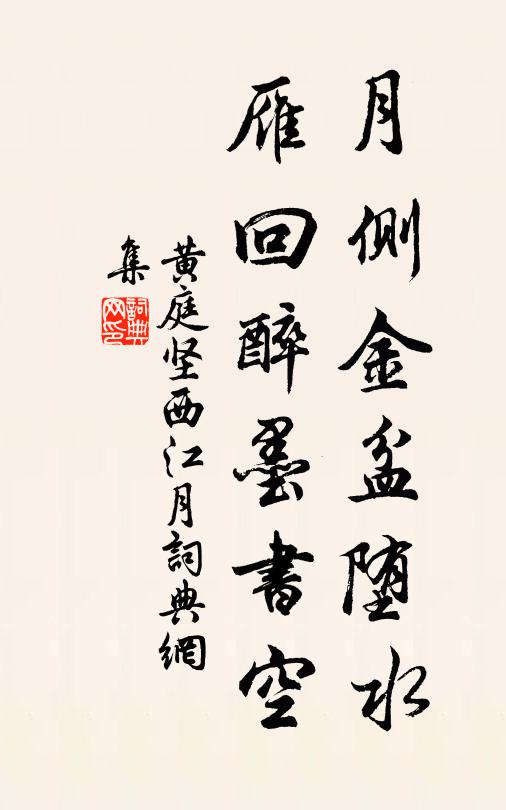 月側金盆堕水
雁回醉墨書空
黄庭坚西江月詞典網
集
詞典網印